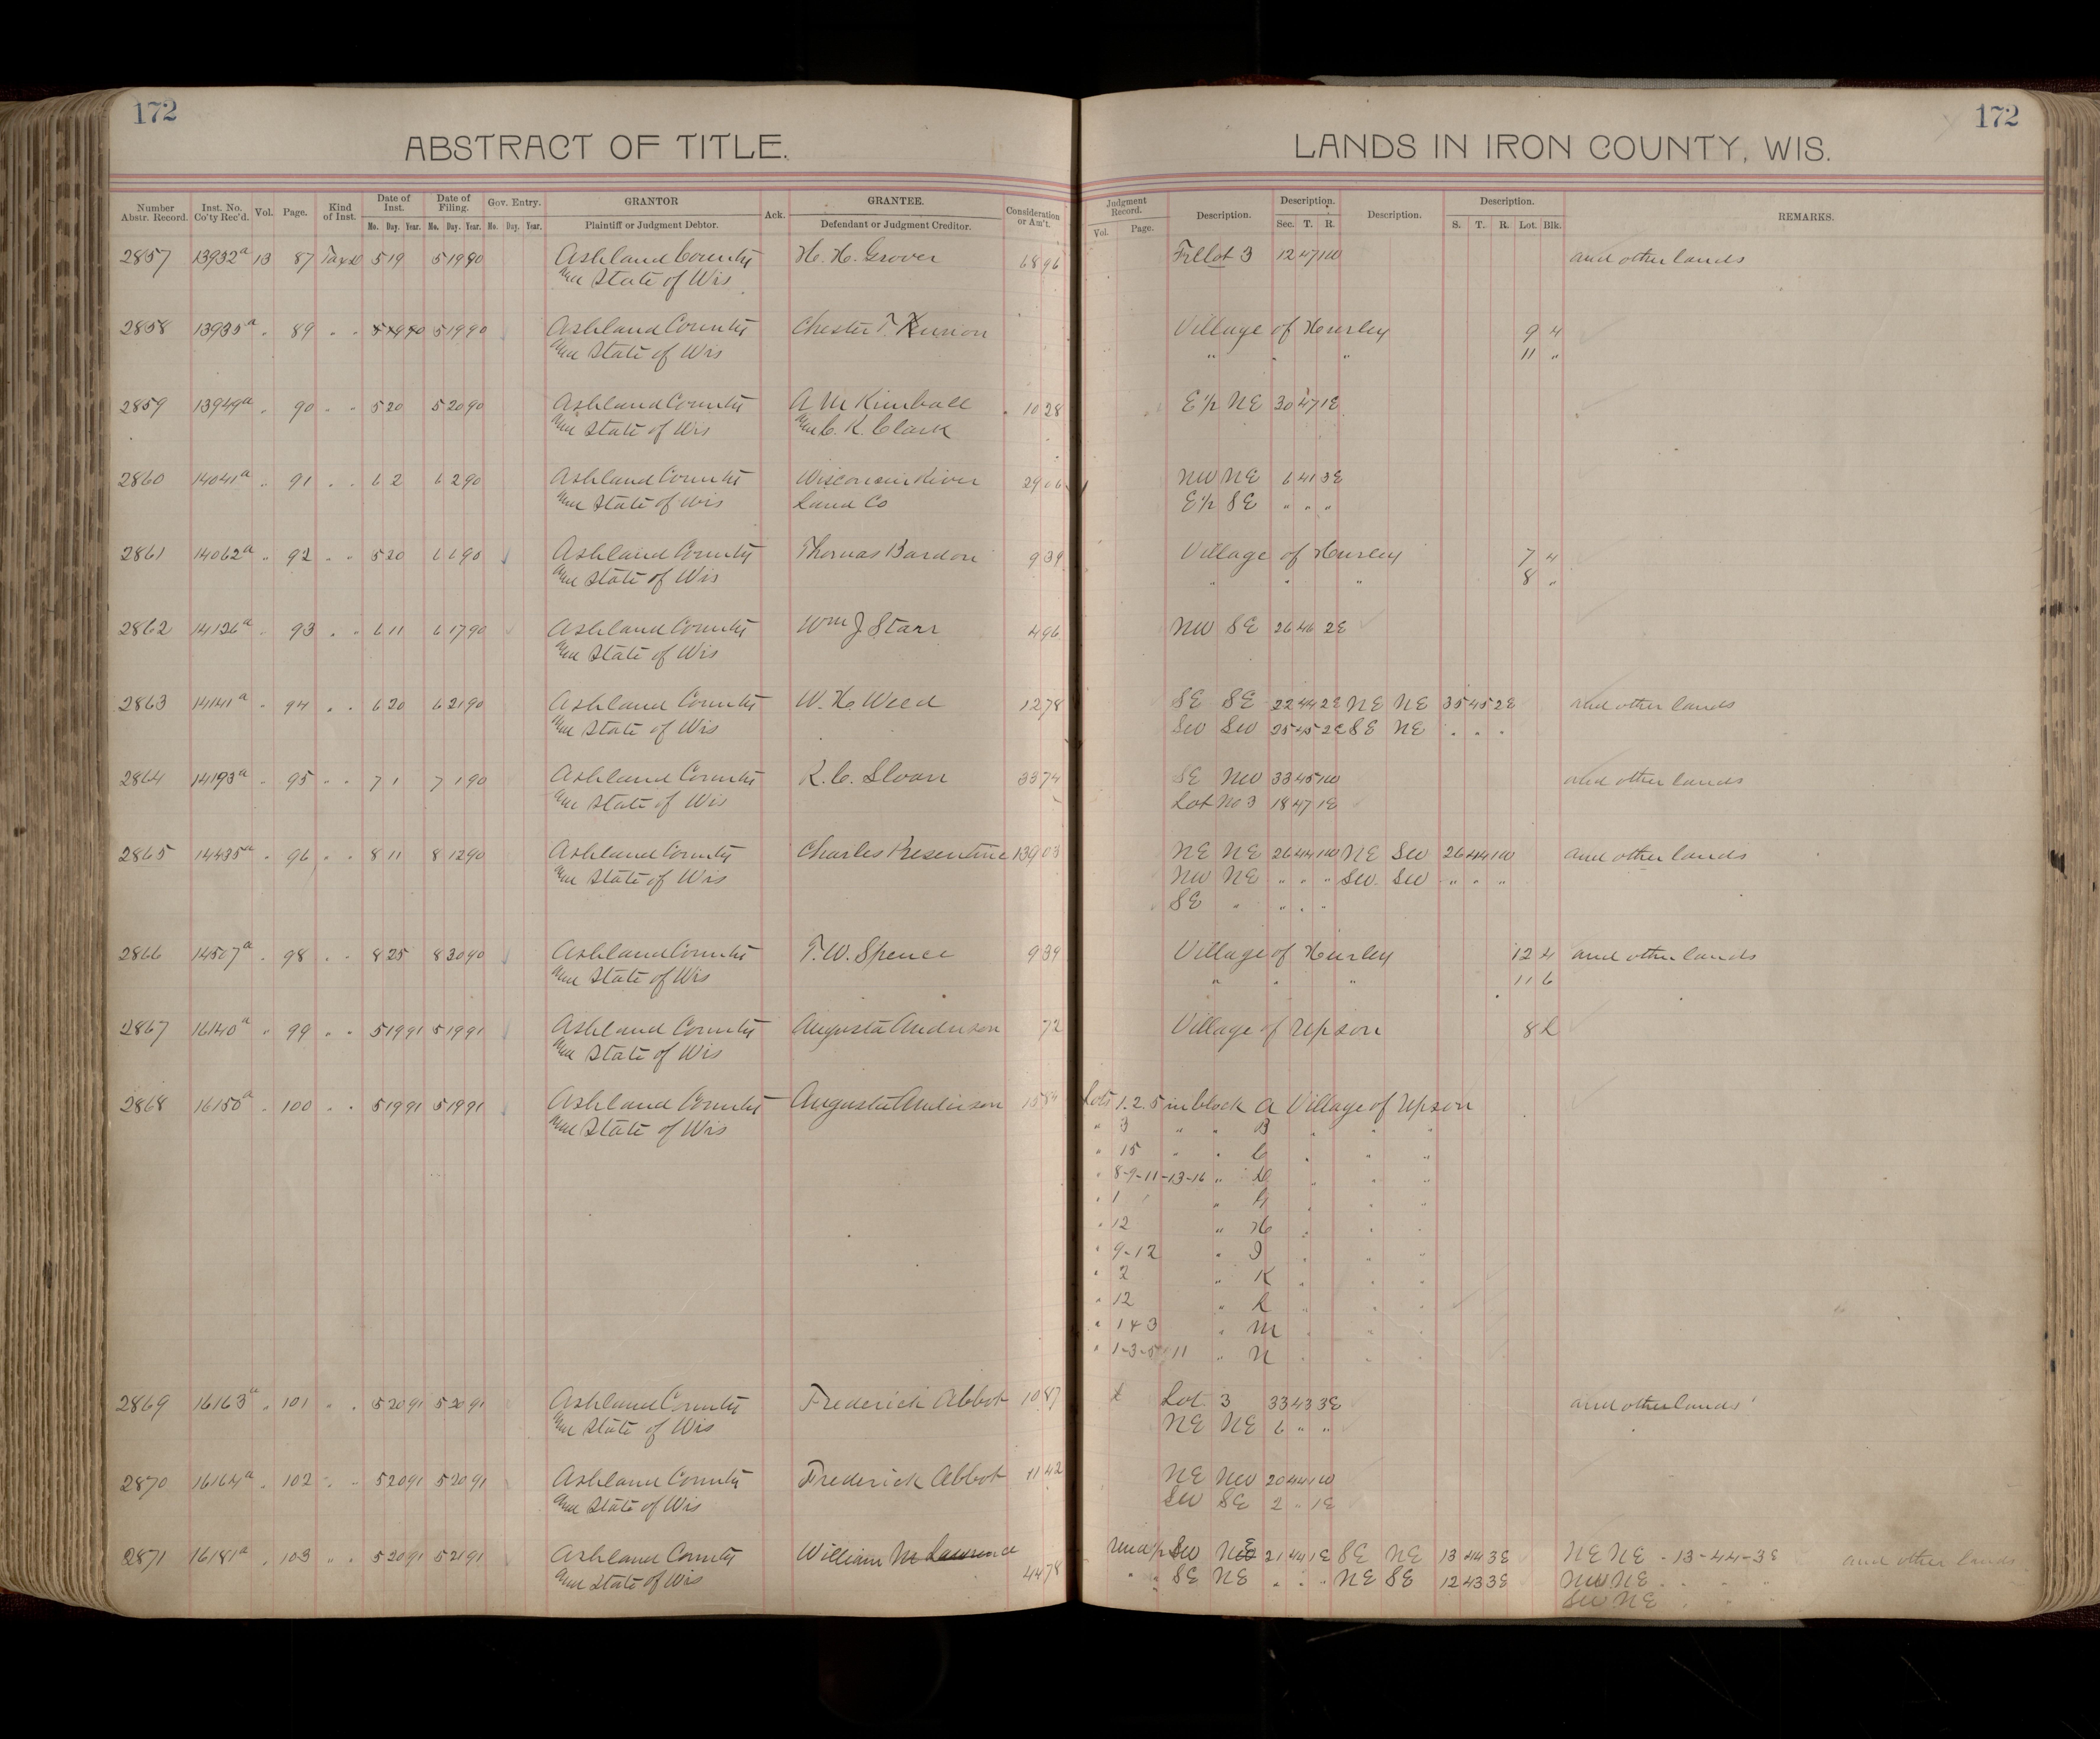 172
172
ABSTRACT OF TITLE.
LANDS IN IRON COUNTY, WIS.
Number Abstr. Record. Inst. No. Co'ty Rec'd. Vol. Page. Kind of Inst. Date of Inst. Mo. Day. Year. Date of Filing. Mo. Day. Year. Gov. Entry. Mo. Day. Year. GRANTOR Plaintiff or Judgment Debtor. Ack. GRANTEE. Defendant or Judgment Creditor. Consideration or Am't. Judgment Record. Vol. Page. Description. Description. Sec. T. R. Description. Description. S. T. R. Lot. Blk. REMARKS.
2857 13932a 13 87 5 19 5 19 90 Ashland County H. H. Grover 68 96 Lot 3 12 47 1W and other lands
and State of Wis
2858 13935a " 89 " " 5 19 90 5 19 90 Ashland County Chester T. Village of Hurley 9 4
and State of Wis " " " 11 "
2859 13949a " 90 " " 5 20 5 20 90 Ashland County A M Kimball 10 28 E1/2 NE 30 47 1E
and State of Wis and C. K. Clark
2860 14041a " 91 " " 6 2 6 2 90 Ashland County Wisconsin River 29 06 NW NE 6 41 3E
and State of Wis Land Co E1/2 SE " " "
2861 14062a " 92 " " 5 20 6 6 90 Ashland County Thomas Bardon 9 39 Village of Hurley 7 4
and State of Wis " " " 8 "
2862 14126a " 93 " " 6 11 6 17 90 Ashland County Wm J Starr 4 96 NW SE 26 46 2E
and State of Wis
2863 14141a " 94 " " 6 20 6 21 90 Ashland County W. H. Weed 12 78 SE SE 22 44 2E NE NE 35 45 2E and other lands
and State of Wis SW SW 25 45 2E SE NE " " "
2864 14193a " 95 " " 7 1 7 1 90 Ashland County R. C. Sloan 33 74 SE NW 33 45 1W and other lands
and State of Wis Lot No 3 18 47 1E
2865 14435a " 96 " " 8 11 8 12 90 Ashland County Charles Resentine 139 03 NE NE 26 44 1W NE SW 26 44 1W and other lands
and State of Wis NW NE " " " SW SW " " "
SE " " " "
2866 14507a " 98 " " 8 25 8 30 90 Ashland County T. W. Spence 9 39 Village of Hurley 12 4 and other lands
and State of Wis " " " 11 6
2867 16140a " 99 " " 5 19 91 5 19 91 Ashland County Augusta Anderson 72 Village of Upson 8 L
and State of Wis
2868 16150a " 100 " " 5 19 91 5 19 91 Ashland County Augusta Anderson 15 84 Lots 1. 2. 5 in block A Village of Upson
and State of Wis " 3 " " B " " "
" 15 " " C " " "
" 8-9-11-13-16 " D " " "
" 1 " " " "
" 12 " H " " "
" 9-12 " I " " "
" 2 " K " " "
" 12 " L " " "
" 1 & 3 " M " " "
" 1-3-5 11 " N " " "
2869 16163a " 101 " " 5 20 91 5 20 91 Ashland County Frederick Abbot 10 87 Lot 3 33 43 3E and other lands
and State of Wis NE NE 6 " "
2870 16164a " 102 " " 5 20 91 5 20 91 Ashland County Frederick Abbot 11 42 NE NW 20 44 1W
and State of Wis SW SE 2 " 1E
2871 16181a " 103 " " 5 20 91 5 21 91 Ashland County William M Lawrence SW NE 21 44 1E SE NE 13 44 3E NE NE - 13-44-3E and other lands
and State of Wis 44 78 " " SE NE " " " NE SE 12 43 3E NW NE " " "
SW NE " " "